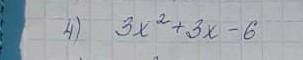 4) 3x² + 3x - 6